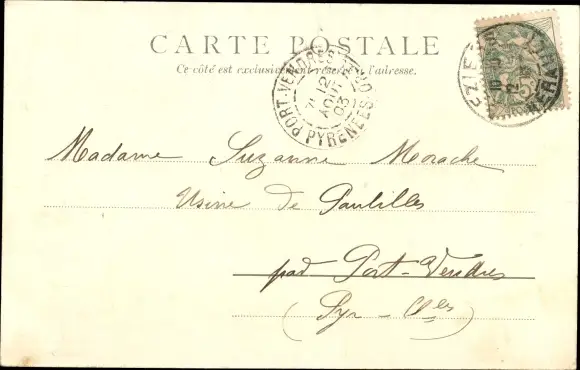 CARTE POSTALE
Ce côté est exclusivement réservé à l'adresse.
PORT-VENDRES
12
AOUT
03
PYRENEES
Madame Suzanne Morache
Usine de Paulilles
par Port-Vendres
(Pyr-Ales)